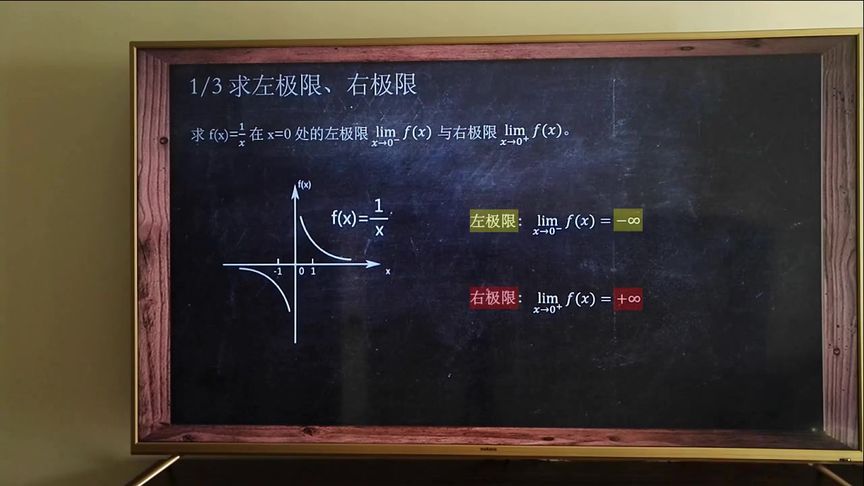 1/3 求左极限、右极限
求 f(x)=1/x 在 x=0 处的左极限 lim x→0⁻ f(x) 与右极限 lim x→0⁺ f(x)。
f(x)
f(x)=1/x
-1 0 1 x
左极限: lim x→0⁻ f(x) = −∞
右极限: lim x→0⁺ f(x) = +∞